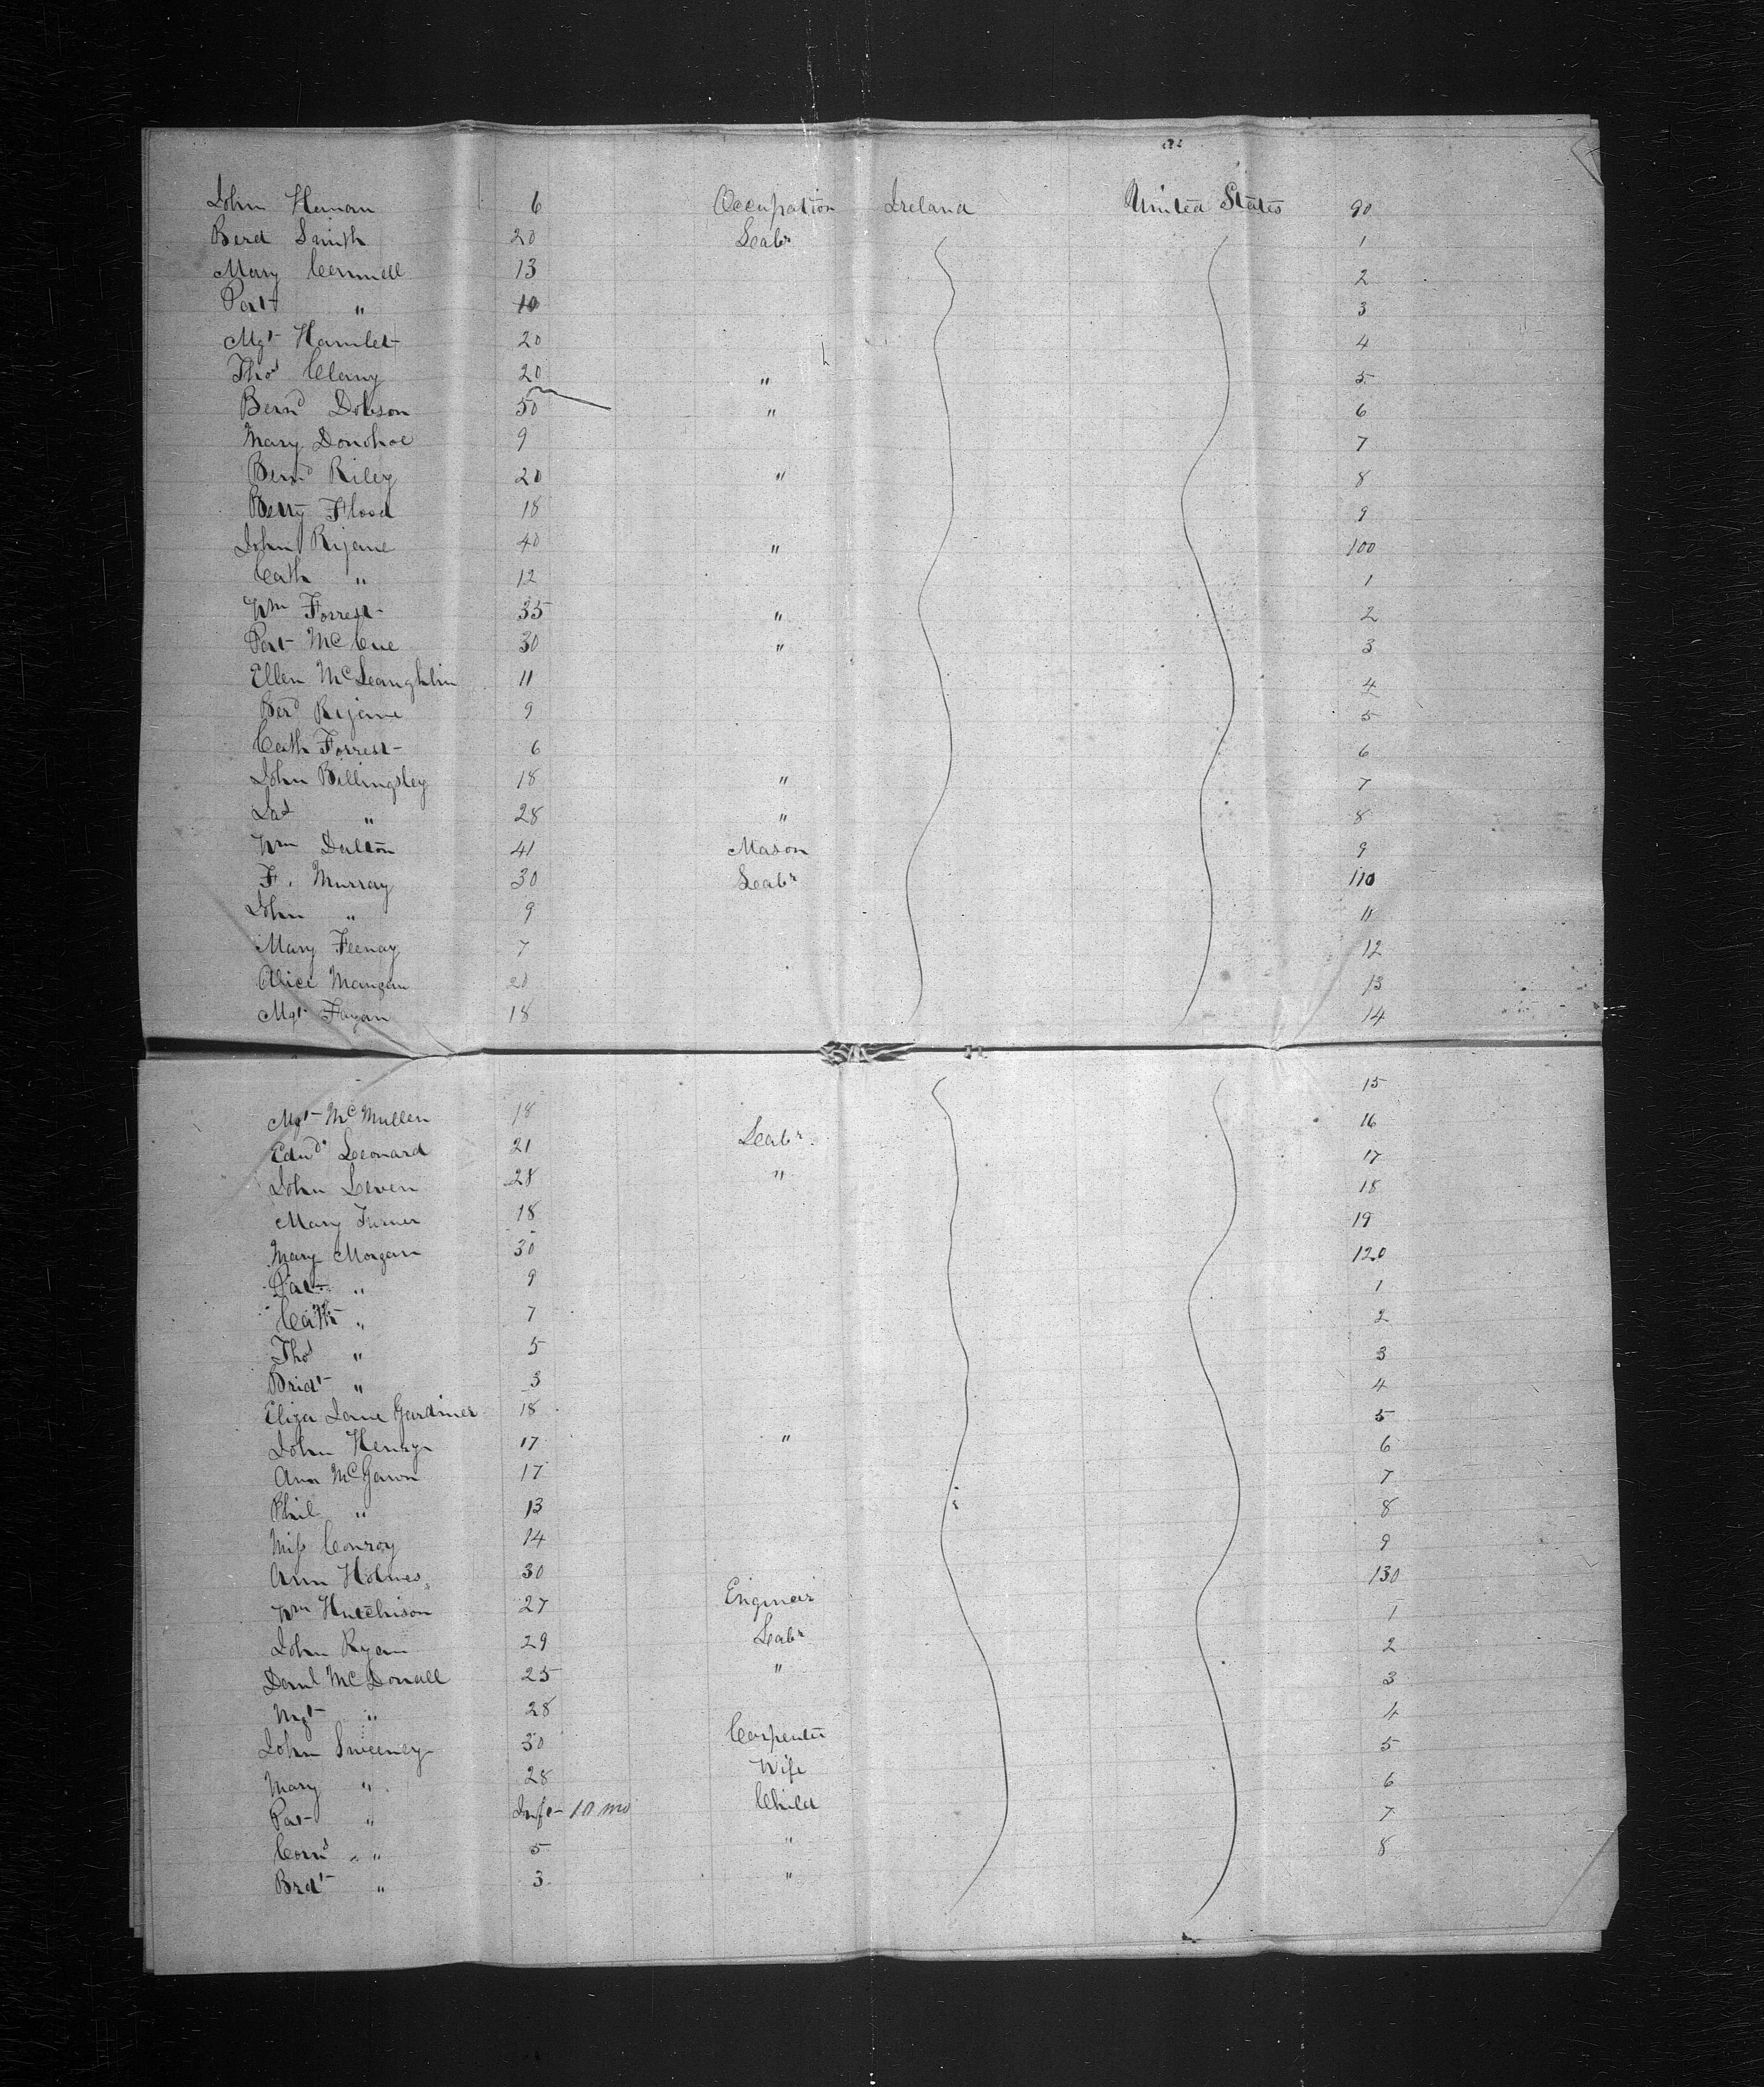 John Hernan 6 Occupation Ireland United States 90
Berd Smith 20 Labr 1
Mary Cornmell 13 2
Pat " 10 3
Mgt Hamlet 20 4
Thos Clany 20 " 5
Bernd Dobson 50 " 6
Mary Donohoe 9 7
Bernd Riley 20 " 8
Betty Flood 18 9
John Rijane 40 " 100
Cath " 12 1
Wm Forrest 35 " 2
Pat McCue 30 " 3
Ellen McLeaughlin 11 4
Berd Rijane 9 5
Cath Forrest 6 6
John Billingsley 18 " 7
Jas " 28 " 8
Wm Dalton 41 Mason 9
F. Murray 30 Labr 110
John " 9 11
Mary Feenay 7 12
Alice Mangan 20 13
Mgt Fagan 18 14
Mgt McMullen 18 15
Edwd Leonard 21 Labr. 16
John Leven 28 " 17
Mary Turner 18 18
Mary Morgan 30 19
Pat " 9 120
Cath " 7 1
Thos " 5 2
Bridt " 3 3
Eliza Jane Gardiner 18 4
John Henry 17 " 5
Ann McGawn 17 6
Phil " 13 7
Miss Conroy 14 8
Ann Holmes 30 9
Wm Hutchison 27 Engineer 130
John Ryan 29 Labr 1
Danl McDonall 25 " 2
Mgt " 28 3
John Sweeney 30 Carpenter 4
Mary " 28 Wife 5
Pat " Inft 10 mo Child 6
Corns " 5 " 7
Brdt " 3 " 8